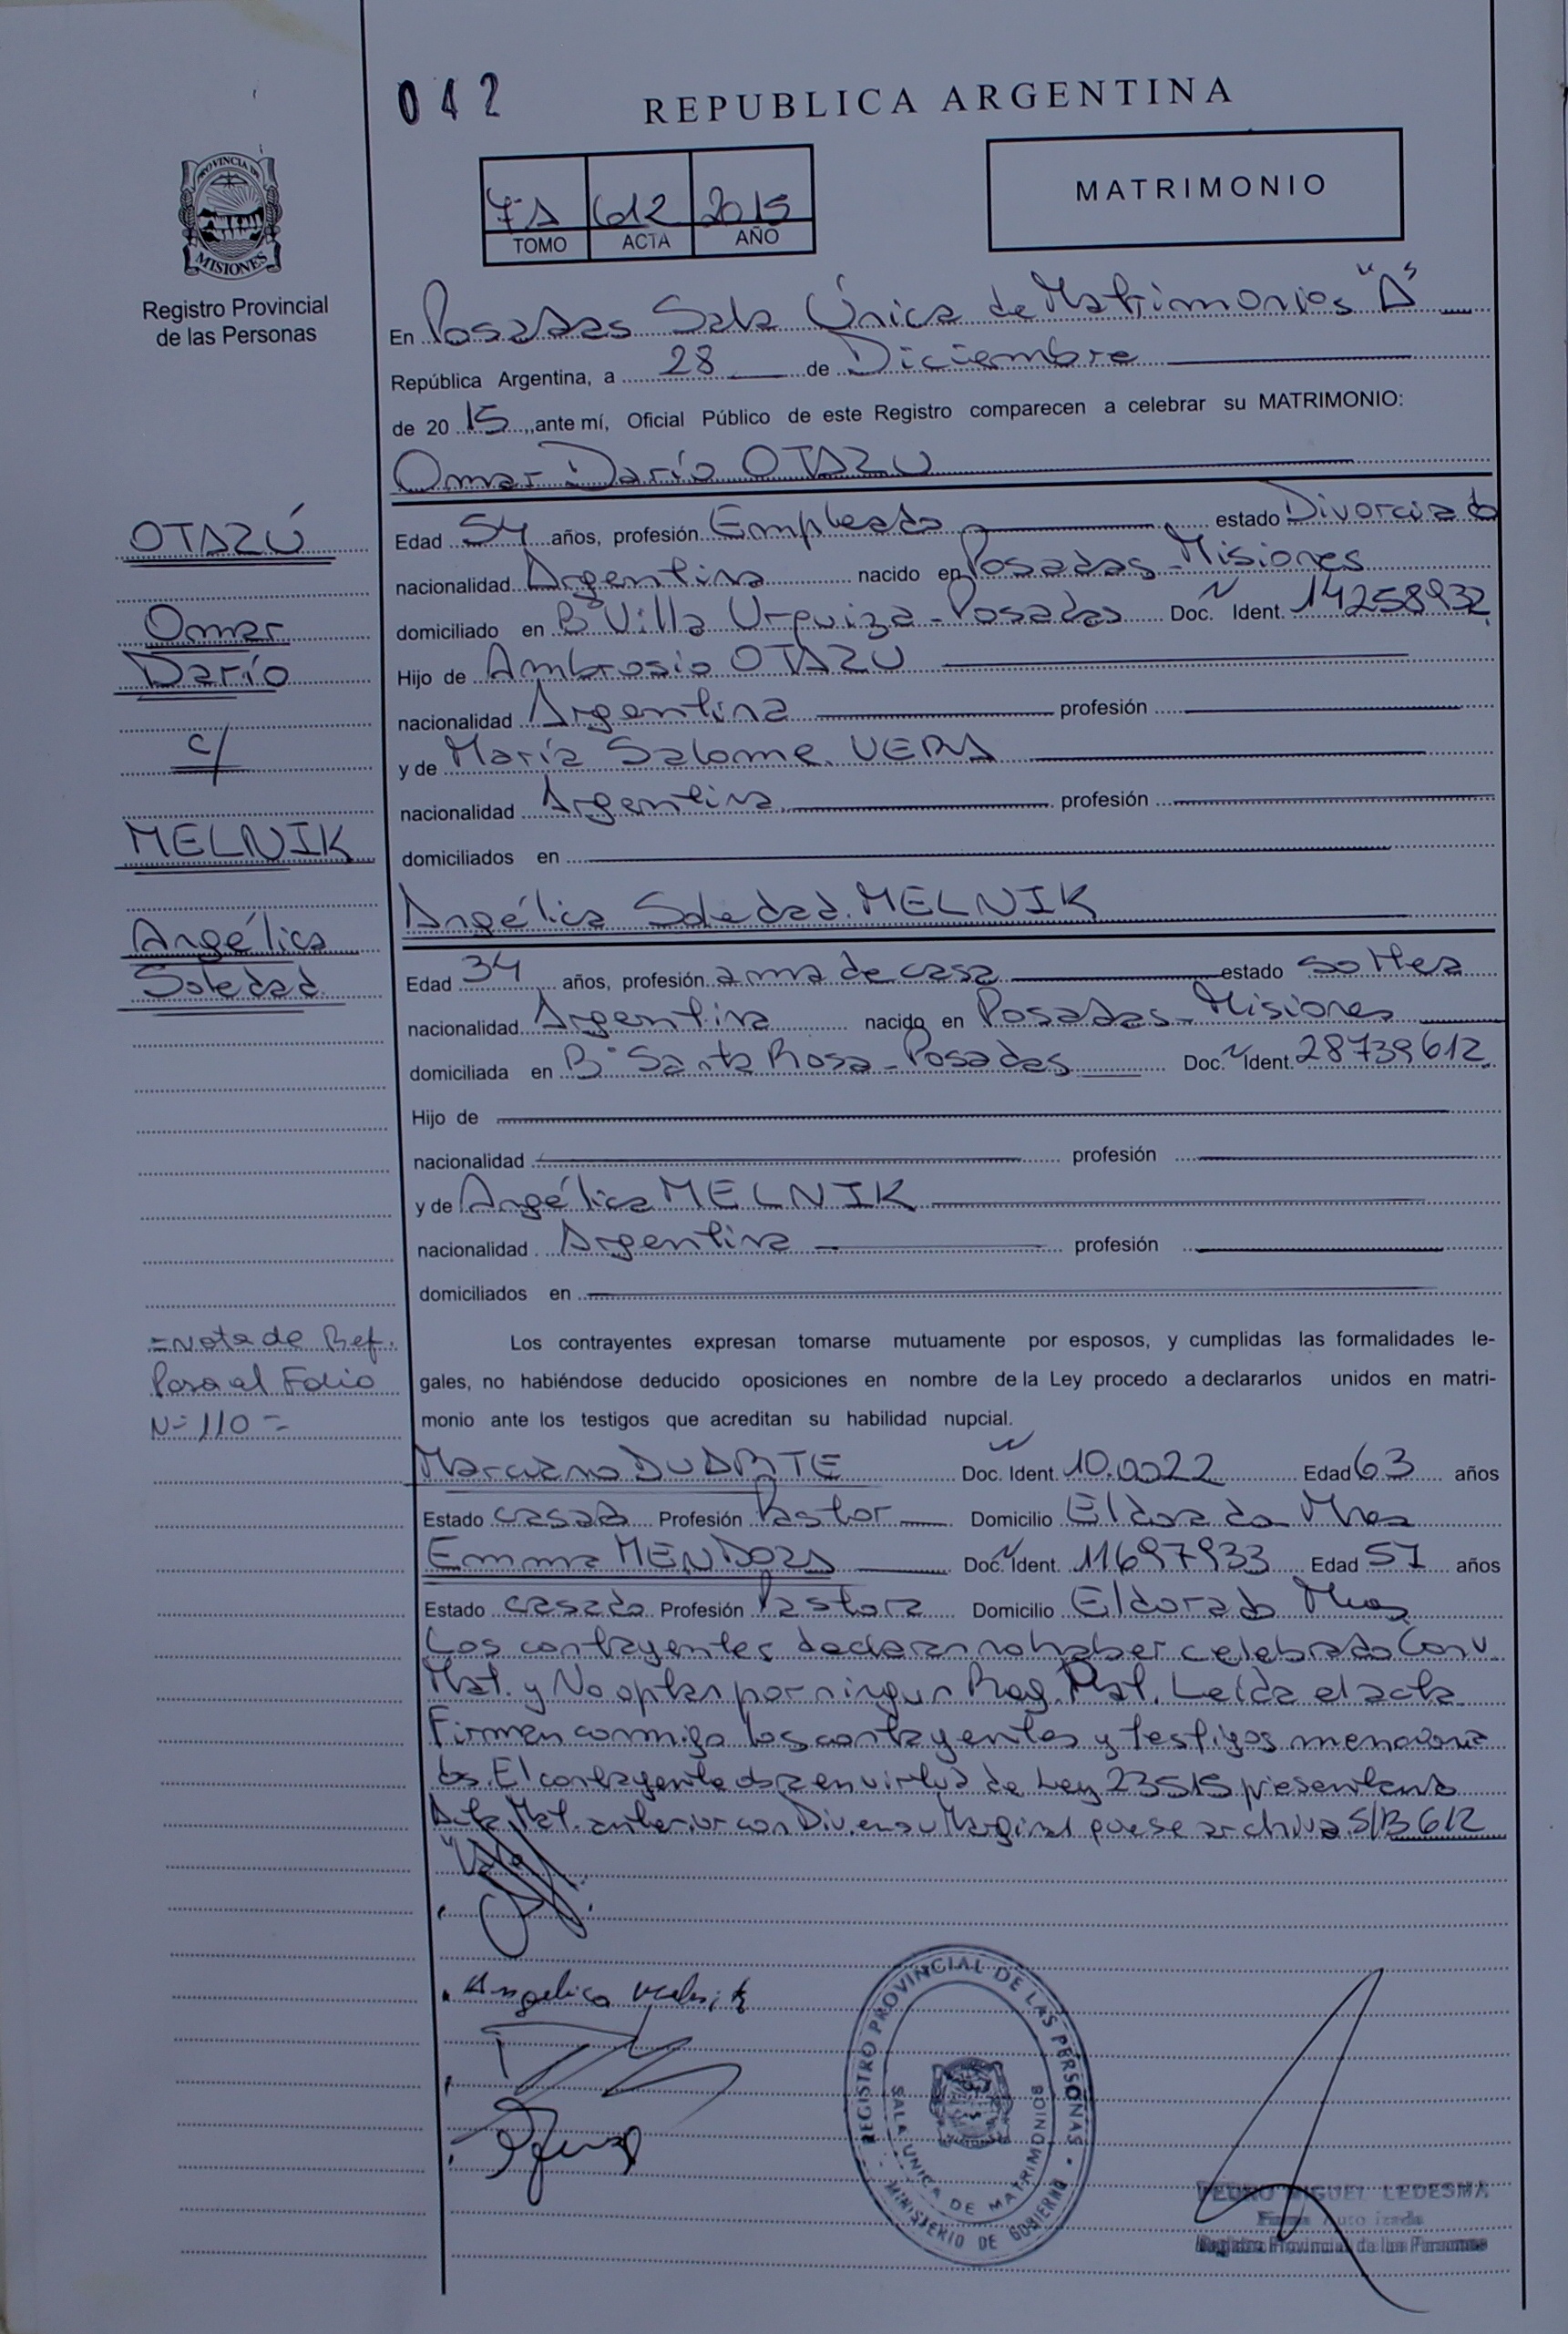 042
REPUBLICA ARGENTINA
PROVINCIA DE
MISIONES
Registro Provincial
de las Personas
7ºA 612 2015
TOMO ACTA AÑO
MATRIMONIO
En Posadas Sala Única de Matrimonios "A"
República Argentina, a 28 de Diciembre
de 2015, ante mí, Oficial Público de este Registro comparecen a celebrar su MATRIMONIO:
Omar Darío OTAZU
OTAZÚ
Omar
Darío
c/
MELNIK
Angélica
Soledad
Edad 54 años, profesión Empleado estado Divorciado
nacionalidad Argentina nacido en Posadas - Misiones
domiciliado en Bº Villa Urquiza - Posadas Doc. Ident. 14258932
Hijo de Ambrosio OTAZU
nacionalidad Argentina profesión
y de María Salome VERA
nacionalidad Argentina profesión
domiciliados en
Angélica Soledad MELNIK
Edad 34 años, profesión ama de casa estado soltera
nacionalidad Argentina nacido en Posadas - Misiones
domiciliada en Bº Santa Rosa - Posadas Doc. Ident. 28739612
Hijo de
nacionalidad profesión
y de Angélica MELNIK
nacionalidad Argentina profesión
domiciliados en
= Nota de Ref.
Pasa al Folio
Nº 110 =
Los contrayentes expresan tomarse mutuamente por esposos, y cumplidas las formalidades le-
gales, no habiéndose deducido oposiciones en nombre de la Ley procedo a declararlos unidos en matri-
monio ante los testigos que acreditan su habilidad nupcial.
Marciano DUARTE Doc. Ident. Edad 63 años
Estado casado Profesión Pastor Domicilio Eldorado Mnes
Emma MENDOZA Doc. Ident. 11697933 Edad 57 años
Estado casada Profesión Pastora Domicilio Eldorado Mnes
Los contrayentes declaran no haber celebrado Conv.
Mat. y No optan por ningun Reg. Mat. Leída el acta
Firman conmigo los contrayentes y testigos menciona
dos. El contrayente obra en virtud de Ley 23515 presentando
Acta Mat. anterior con Div. en su Marginal que se archiva S/B 612
Angelica Melnik
REGISTRO PROVINCIAL DE LAS PERSONAS
SALA UNICA DE MATRIMONIOS
MINISTERIO DE GOBIERNO
PEDRO MIGUEL LEDESMA
Firma Autorizada
Registro Provincial de las Personas